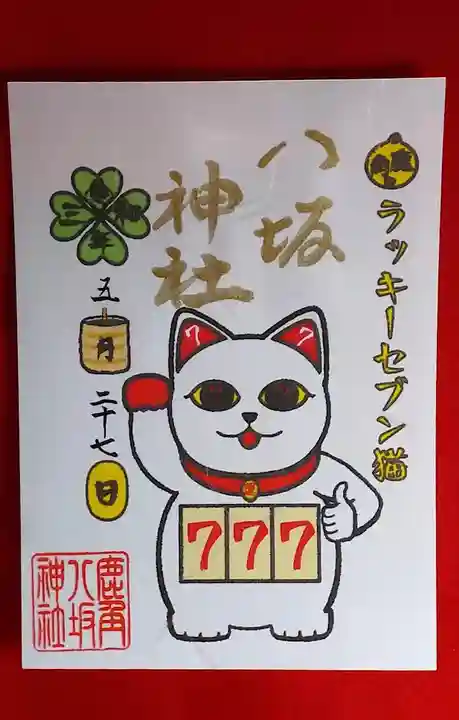 ラッキーセブン猫
八坂
神社
令和
三年
五
月
二十七
日
7 7
777
鹿角
八坂
神社